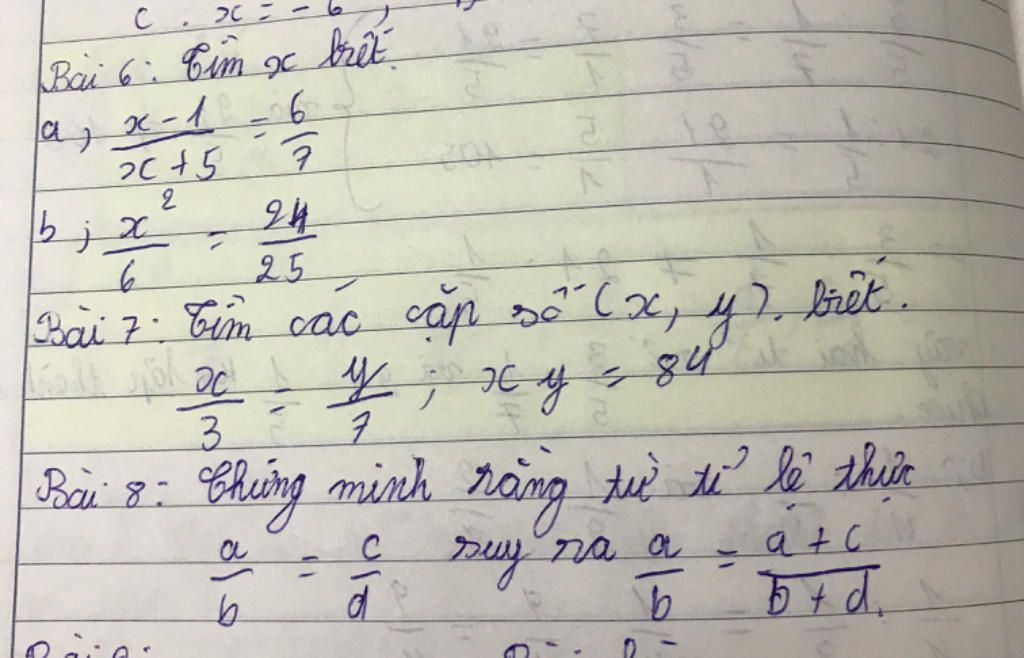 c. x = -6;
Bài 6: Tìm x biết.
a; \frac{x-1}{x+5} = \frac{6}{7}
b; \frac{x^2}{6} = \frac{24}{25}
Bài 7: Tìm các cặp số (x, y). biết.
\frac{x}{3} = \frac{y}{7}; xy = 84
Bài 8: Chứng minh rằng từ tỉ lệ thức
\frac{a}{b} = \frac{c}{d} suy ra \frac{a}{b} = \frac{a+c}{b+d}.